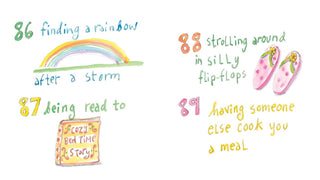 86 finding a rainbow
after a storm
87 being read to
Cozy
Bed Time
Story
88 strolling around
in silly
flip-flops
89 having someone
else cook you
a meal